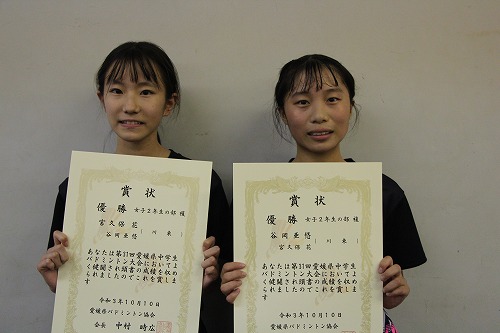 賞状
優勝 女子2年生の部 複
宮久保 花
谷岡亜悠
川東
あなたは第31回愛媛県中学生
バドミントン大会において
頭書の成績を収め
られましたのでこれを賞します
令和3年10月10日
愛媛県バドミントン協会
会長 中村時広
賞状
優勝 女子2年生の部 複
谷岡亜悠
宮久保 花
川東
あなたは第31回愛媛県中学生
バドミントン大会において
頭書の成績を収め
られましたのでこれを賞します
令和3年10月10日
愛媛県バドミントン協会